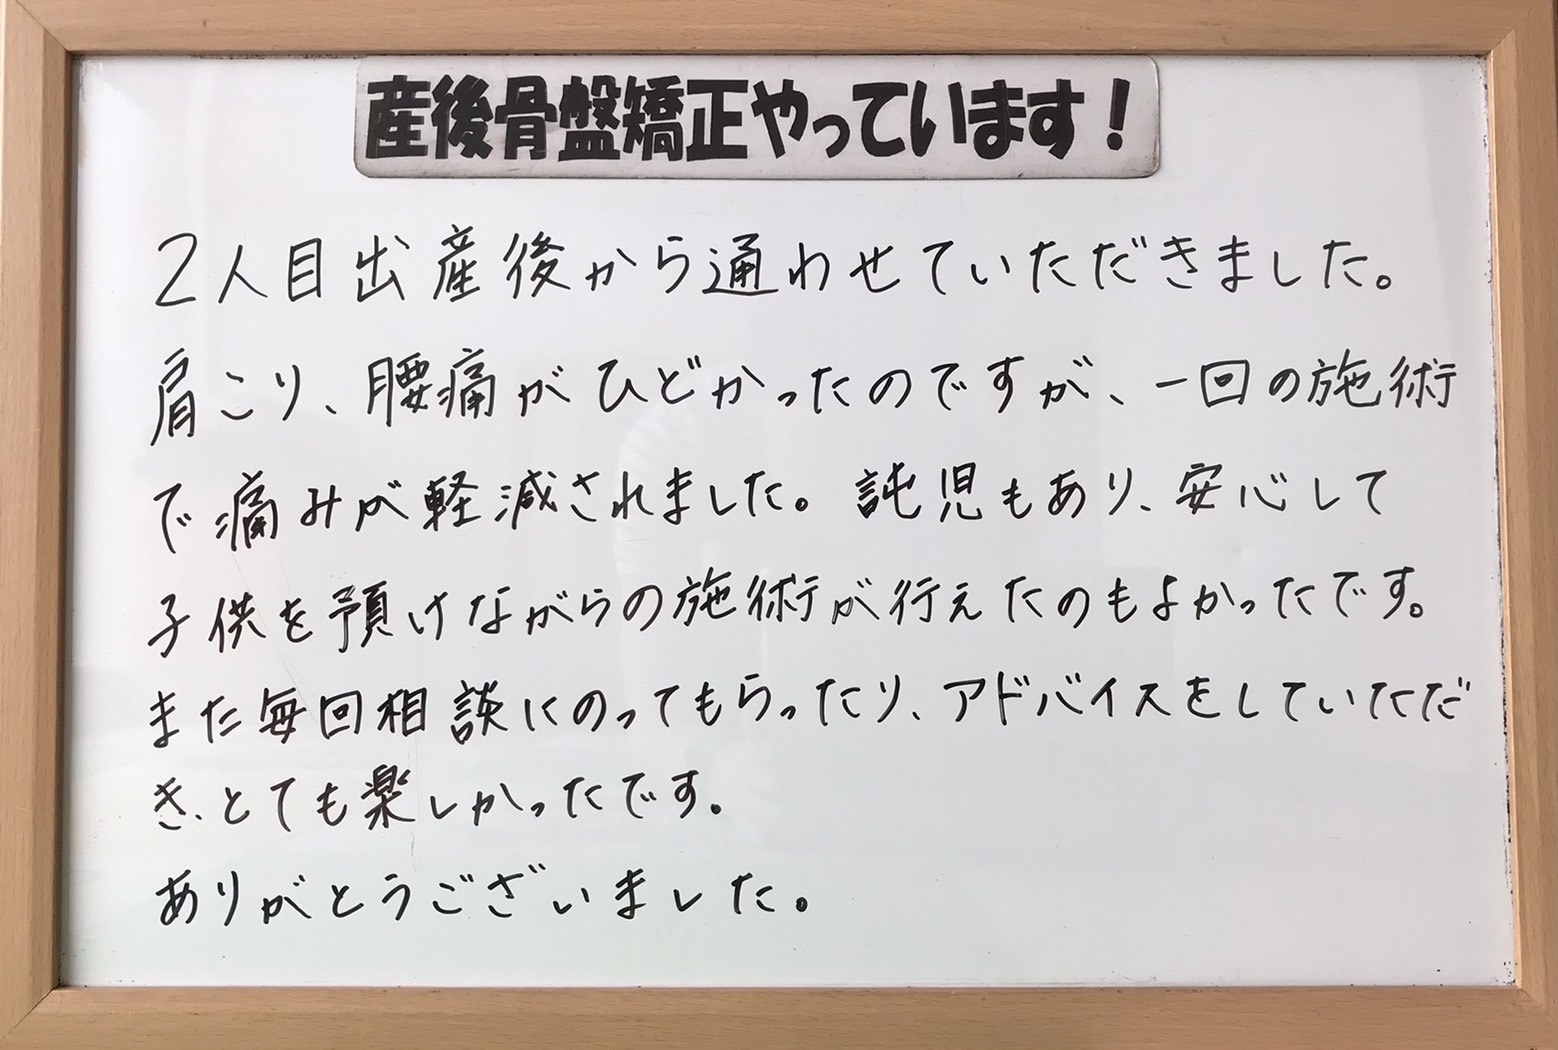 産後骨盤矯正やっています!
2人目出産後から通わせていただきました。
肩こり、腰痛がひどかったのですが、一回の施術
で痛みが軽減されました。託児もあり、安心して
子供を預けながらの施術が行えたのもよかったです。
また毎回相談にのってもらったり、アドバイスをしていただ
き、とても楽しかったです。
ありがとうございました。